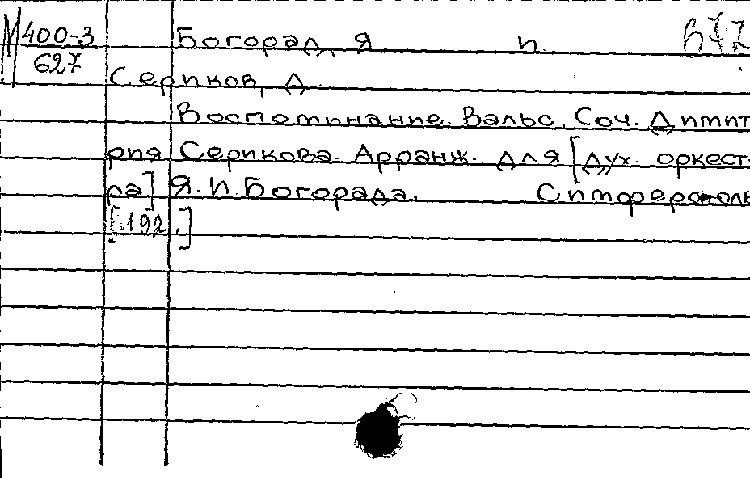 М 400-3 Богорад, Я. И. 672
627
Сериков, Д
Воспоминание. Вальс. Соч. Димит
рия Серикова. Арранж. для [дух. оркест-
ра] Я.И.Богорада. Симферополь
[192 .]